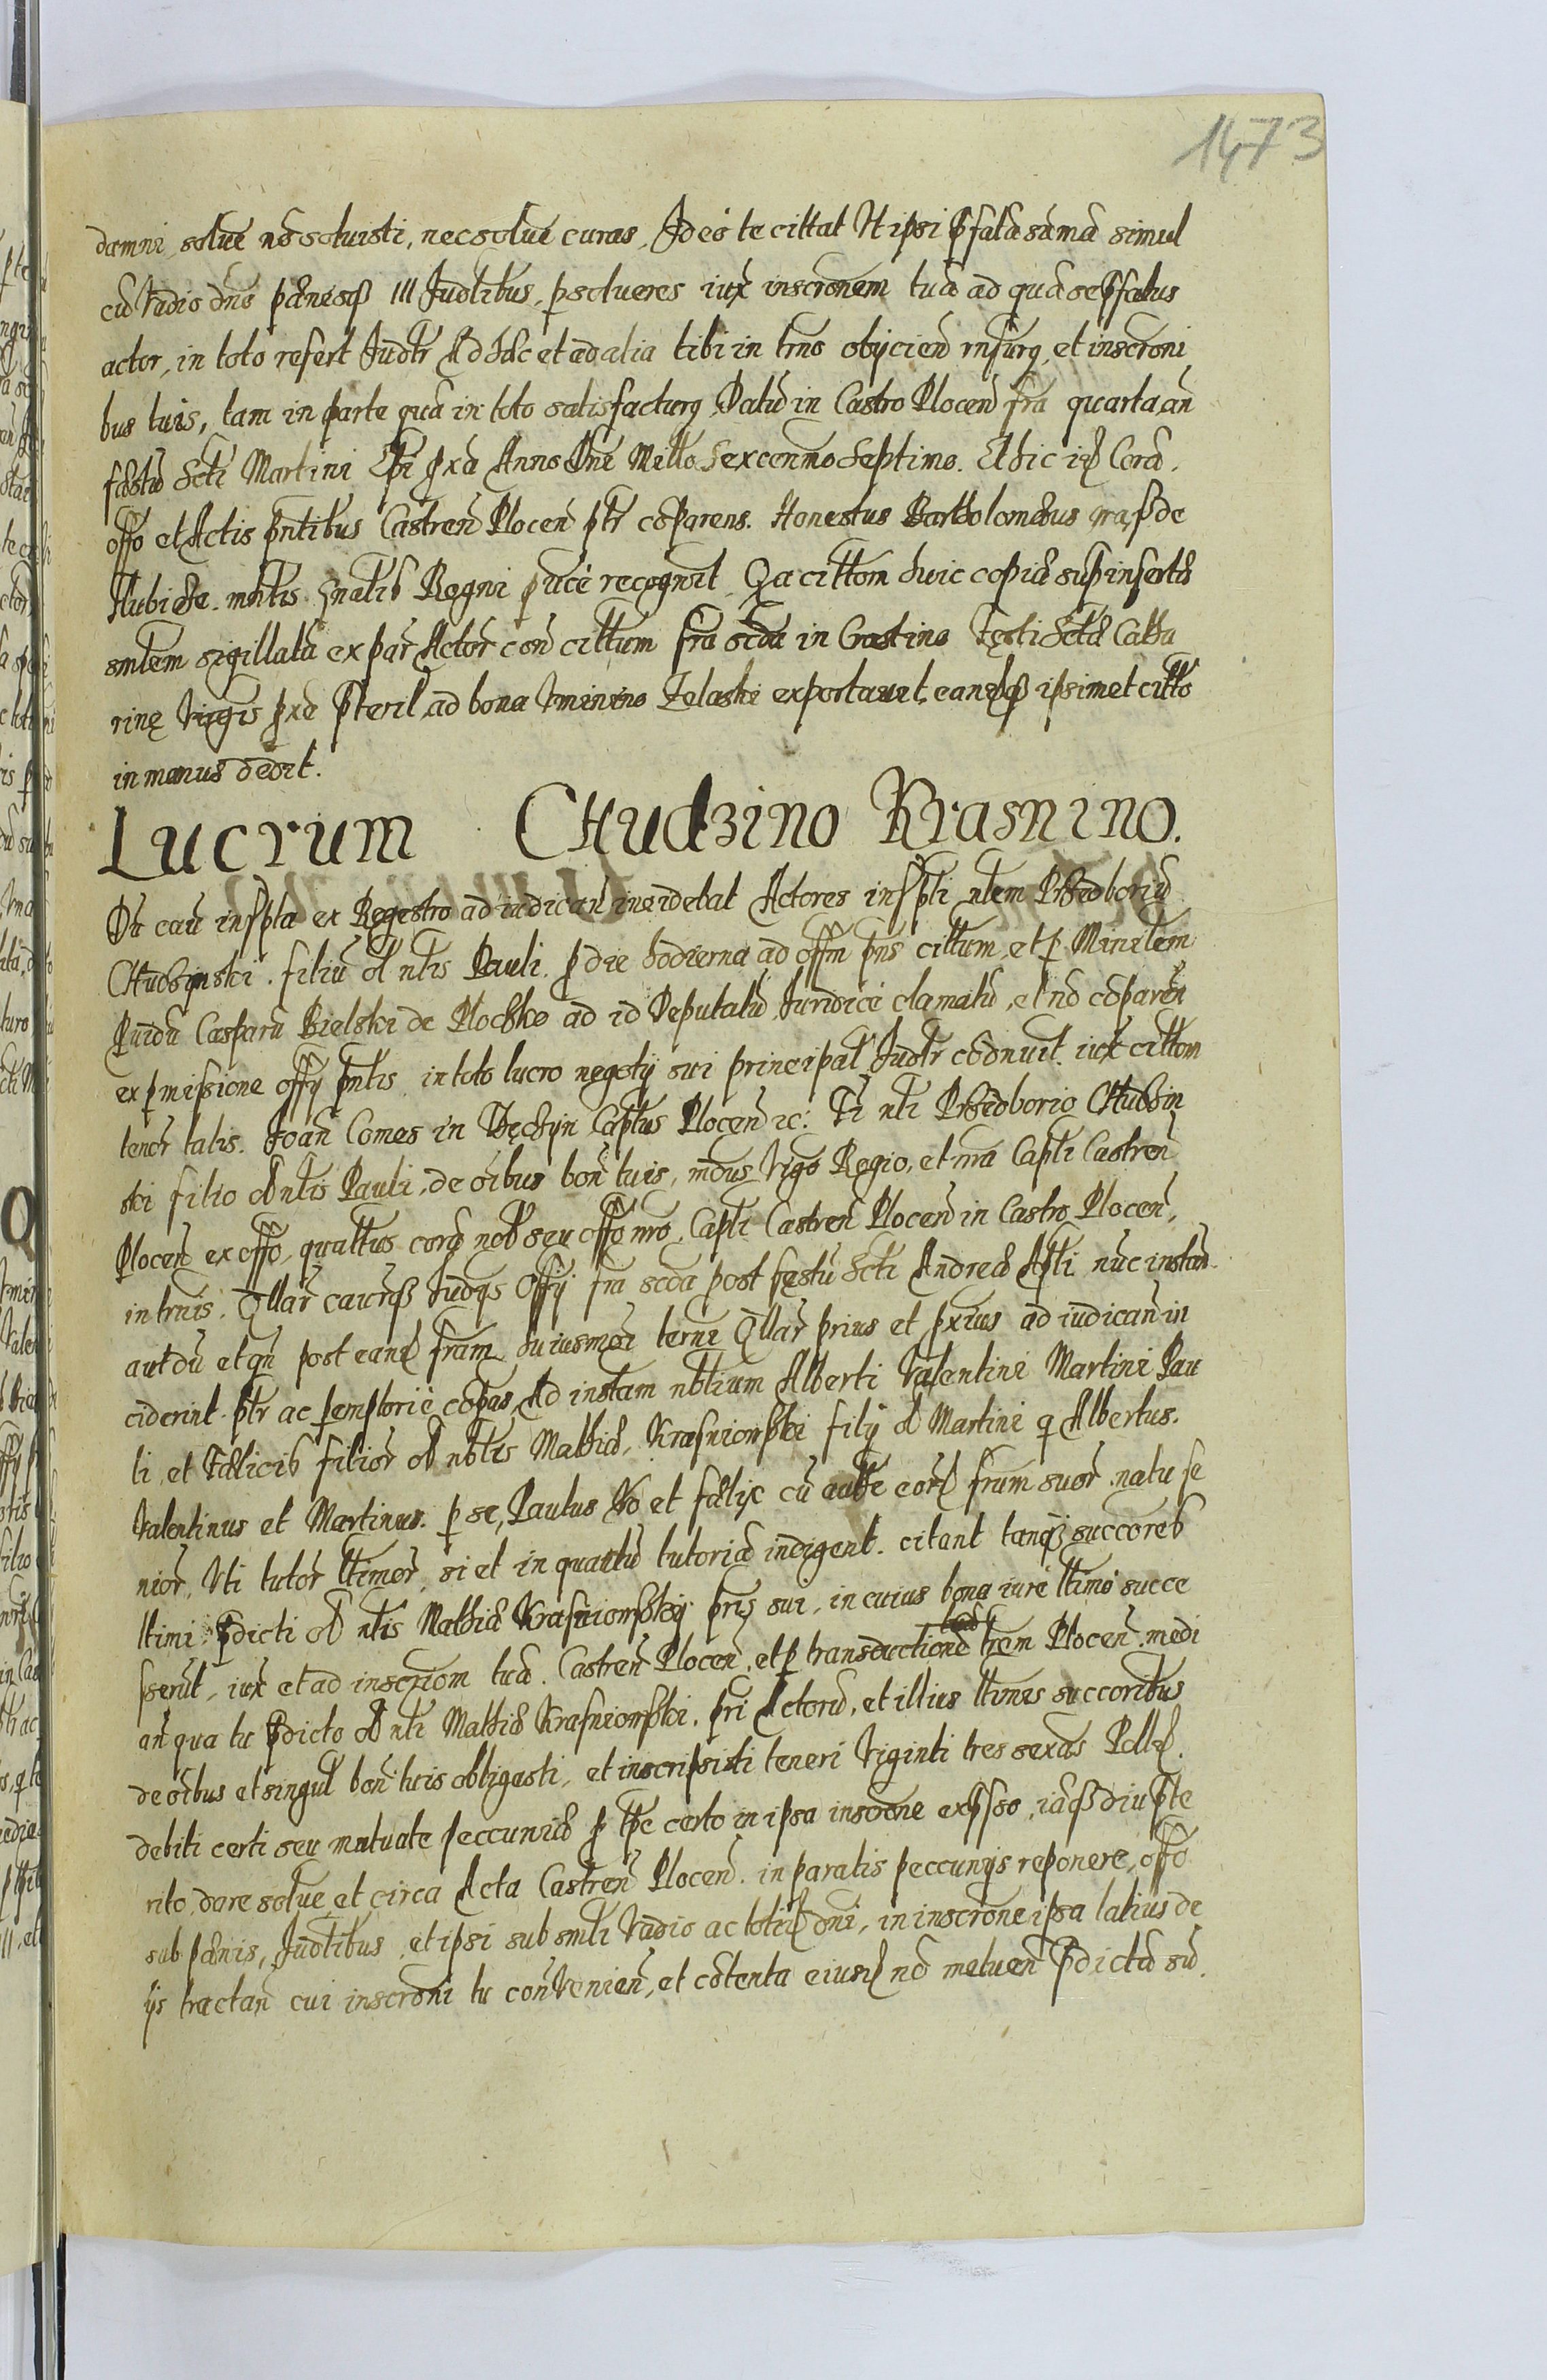 1473
damni, solue nō soluisti, nec solue curas, Ideo te cittat Vt ipsi p̄fatā sūmā simul
cū Vadio dn̄o pænisq̨ III Judlibus, p̱solueres iux inscronem tuā ad quā se p̄fatus
actor, in toto refert Judłr Ad hæc et ad alia tibi in trn̄o obyciēn rn̄surg, et inscroni
bus tuis, tam in parte quā in toto satisfacturg. Datū in Castro Plocen̄ fra quarta an̄
fæstū Scti Martini Ep̄i p̱xa Anno Dn̄i Mille Sexcenmo Septimo. Et hic id Corā.
offo et Actis pn̄tibus Castren̄ Plocen̄ ptr cōparens. Honestus Bartholomæus de
Regni recognit. Qa cittom huic copiæ sup insertæ
smłem sigillatā ex par Actor con̄ cittum fra scda in Crastino Fęsti Sctæ Catha
rinę Virgis p̱xe p̄teril, ad bona Vminino Zelaski exportauit, eandq̨ ipsimet citto
in manus dedit.
Lucrum CHudzino Krasnino.
Dū cau in sp̄ta ex Regestro ad iudican̄ incidebat Actores insp̄ti ntem Prźedboriū
CHudzynski. filiū ol ntis Pauli. p̱ die hodierna ad offm p̄ns cittum, et p̱ Minrlem
Puidū Casparū Bielski de Plochko ad id Deputatū Juridice clamatū, et nō cōparen̄
ex p̱missione offy p̄ntis in toto lucro negoty sui principal Judłr cōdnuit. iux cittom
tenor talis. Joan̄ Comes in Tęczyn Captus Plocen̄ &c: Ti ntī Prźedborio CHudzin
ski filio ol ntis Pauli, de oībus bon̄ tuis, mdus Vigo Regio, et mā Captī Castren̄
Plocen̄ ex offo, quattus corā nob seu offo nro. Captī Castren̄ Plocen̄ in Castro Plocen̄,
in trn̄is. Qllar caurq̨ Judys Offy fra scda post fęstū Scti Andreæ Apti nūc instan̄
aut dū et qn̄ post eand fram huiusmōi terni Qllar prius et p̱xius ad iudican̄ in
ciderint. ptr ac pemptorie cōpas, Ad instam nbłium Alberti Valentini Martini Pau
li, et Fælicis filior ol nbłis Mathiæ, Krasniewski fily ol Martini q Albertus.
Valentinus et Martinus. p̱ se, Paulus Vo et fælix cū autte eord frum suor natu se
nior, Vti tutor ltimor, si et in quantū tutoriæ indigent. citant tanq̨ succores
ltimi p̄dicti ol ntis Mathiæ Krasniewsky pris sui, in cuius bona iure ltimo succe
sserūt, iux et ad inscriom tuā. Castren̄ Plocen̄, et p̱ transductionē trem Plocen̄. medi
an̄ qua tu p̄dicto ol nti Mathiæ Krasniewski, pri Actorū, et illius ltimis succoribus
de oībus et singul bon̄ tuis obligasti, et inscripsisti teneri Viginti tres sexās Poll.
debiti certi seu mutuate peccuniæ p̱ tp̄e certo in ipsa inscrone exp̄sso, iāq̨ diu p̄te
rito, dare solue, et circa Acta Castren̄ Plocen̄. in paratis peccunys reponere, offo
sub pænis, Judlibus, et ipsi sub smłi Vadio ac totid dn̄i, in inscrone ipsa latius de
ys tractan̄ cui inscroni tu con̄venien̄, et cōtenta eiusd nō metuen̄ p̄dictā sū.